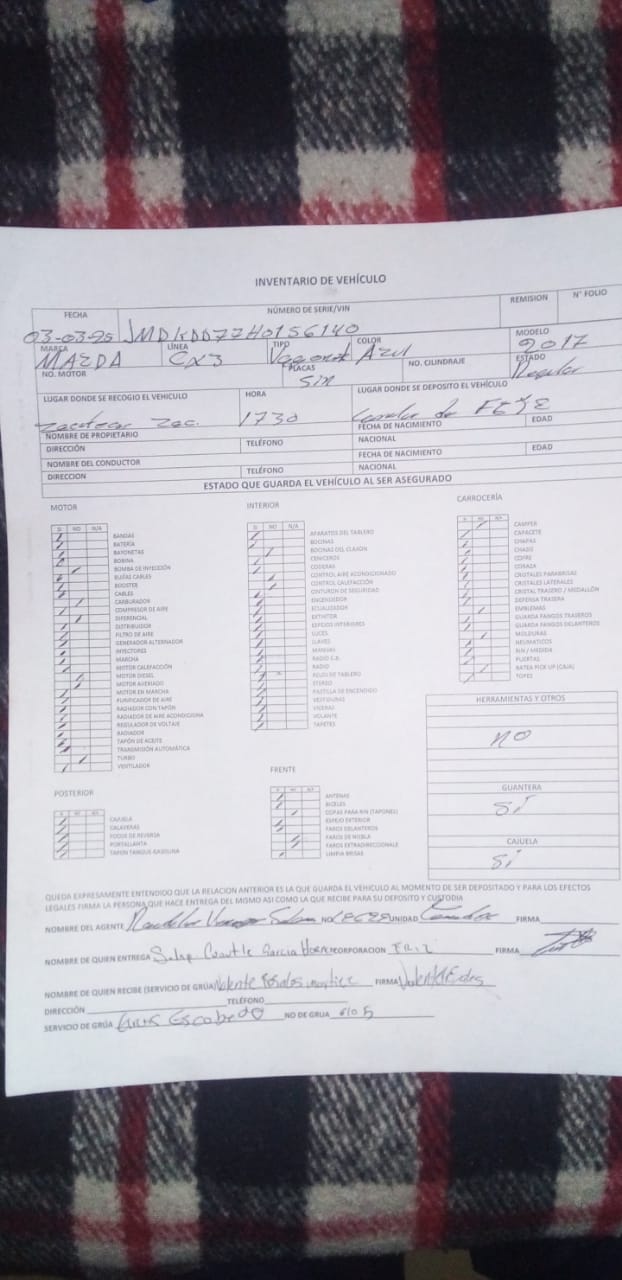 INVENTARIO DE VEHÍCULO
FECHA NÚMERO DE SERIE/VIN REMISION N° FOLIO
03-03-25 JMDKDD77H0156140
MARCA LÍNEA TIPO COLOR MODELO
MAZDA CX3 Azul 2017
NO. MOTOR PLACAS NO. CILINDRAJE ESTADO
Sin Regular
LUGAR DONDE SE RECOGIO EL VEHICULO HORA LUGAR DONDE SE DEPOSITO EL VEHÍCULO
Zac. 1730
NOMBRE DE PROPIETARIO FECHA DE NACIMIENTO EDAD
DIRECCIÓN TELÉFONO NACIONAL
NOMBRE DEL CONDUCTOR FECHA DE NACIMIENTO EDAD
DIRECCION TELÉFONO NACIONAL
ESTADO QUE GUARDA EL VEHÍCULO AL SER ASEGURADO
MOTOR
SI NO N/A
BANDAS
BATERÍA
BAYONETAS
BOBINA
BOMBA DE INYECCIÓN
BUJÍAS CABLES
BOOSTER
CABLES
CARBURADOR
COMPRESOR DE AIRE
DIFERENCIAL
DISTRIBUIDOR
FILTRO DE AIRE
GENERADOR ALTERNADOR
INYECTORES
MARCHA
MOTOR CALEFACCIÓN
MOTOR DIESEL
MOTOR AVERIADO
MOTOR EN MARCHA
PURIFICADOR DE AIRE
RADIADOR CON TAPÓN
RADIADOR DE AIRE ACONDICIONA
REGULADOR DE VOLTAJE
RADIADOR
TAPÓN DE ACEITE
TRANSMISIÓN AUTOMÁTICA
TURBO
VENTILADOR
INTERIOR
SI NO N/A
APARATOS DEL TABLERO
BOCINAS
BOCINAS DEL CLAXON
CENICEROS
CODERAS
CONTROL AIRE ACONDICIONADO
CONTROL CALEFACCIÓN
CINTURON DE SEGURIDAD
ENCENDEDOR
ECUALIZADOR
EXTINTOR
ESPEJOS INTERIORES
LUCES
LLAVES
MANIJAS
RADIO C.B.
RADIO
RELOJ DE TABLERO
STEREO
PASTILLA DE ENCENDIDO
VESTIDURAS
VISERAS
VOLANTE
TAPETES
CARROCERÍA
SI NO N/A
CAMPER
CAPACETE
CHAPAS
CHASIS
COFRE
CORAZA
CRISTALES PARABRISAS
CRISTALES LATERALES
CRISTAL TRASERO / MEDALLÓN
DEFENSA TRASERA
EMBLEMAS
GUARDA FANGOS TRASEROS
GUARDA FANGOS DELANTEROS
MOLDURAS
NEUMATICOS
RIN / MEDIDA
PUERTAS
BATEA PICK UP (CAJA)
TOPES
HERRAMIENTAS Y OTROS
NO
GUANTERA
SI
CAJUELA
SI
POSTERIOR
SI NO N/A
CAJUELA
CALAVERAS
FOCOS DE REVERSA
PORTALLANTA
TAPON TANQUE GASOLINA
FRENTE
SI NO N/A
ANTENAS
BICELES
COPAS PARA RIN (TAPONES)
ESPEJO EXTERIOR
FAROS DELANTEROS
FAROS DE NIEBLA
FAROS EXTRADIRECCIONALE
LIMPIA BRISAS
QUEDA EXPRESAMENTE ENTENDIDO QUE LA RELACION ANTERIOR ES LA QUE GUARDA EL VEHICULO AL MOMENTO DE SER DEPOSITADO Y PARA LOS EFECTOS
LEGALES FIRMA LA PERSONA QUE HACE ENTREGA DEL MISMO ASI COMO LA QUE RECIBE PARA SU DEPOSITO Y CUSTODIA
NOMBRE DEL AGENTE NO UNIDAD FIRMA
NOMBRE DE QUIEN ENTREGA Garcia CORPORACION FIRMA
NOMBRE DE QUIEN RECIBE (SERVICIO DE GRÚA) Valente FIRMA
DIRECCIÓN TELÉFONO
SERVICIO DE GRÚA Escobedo NO DE GRUA